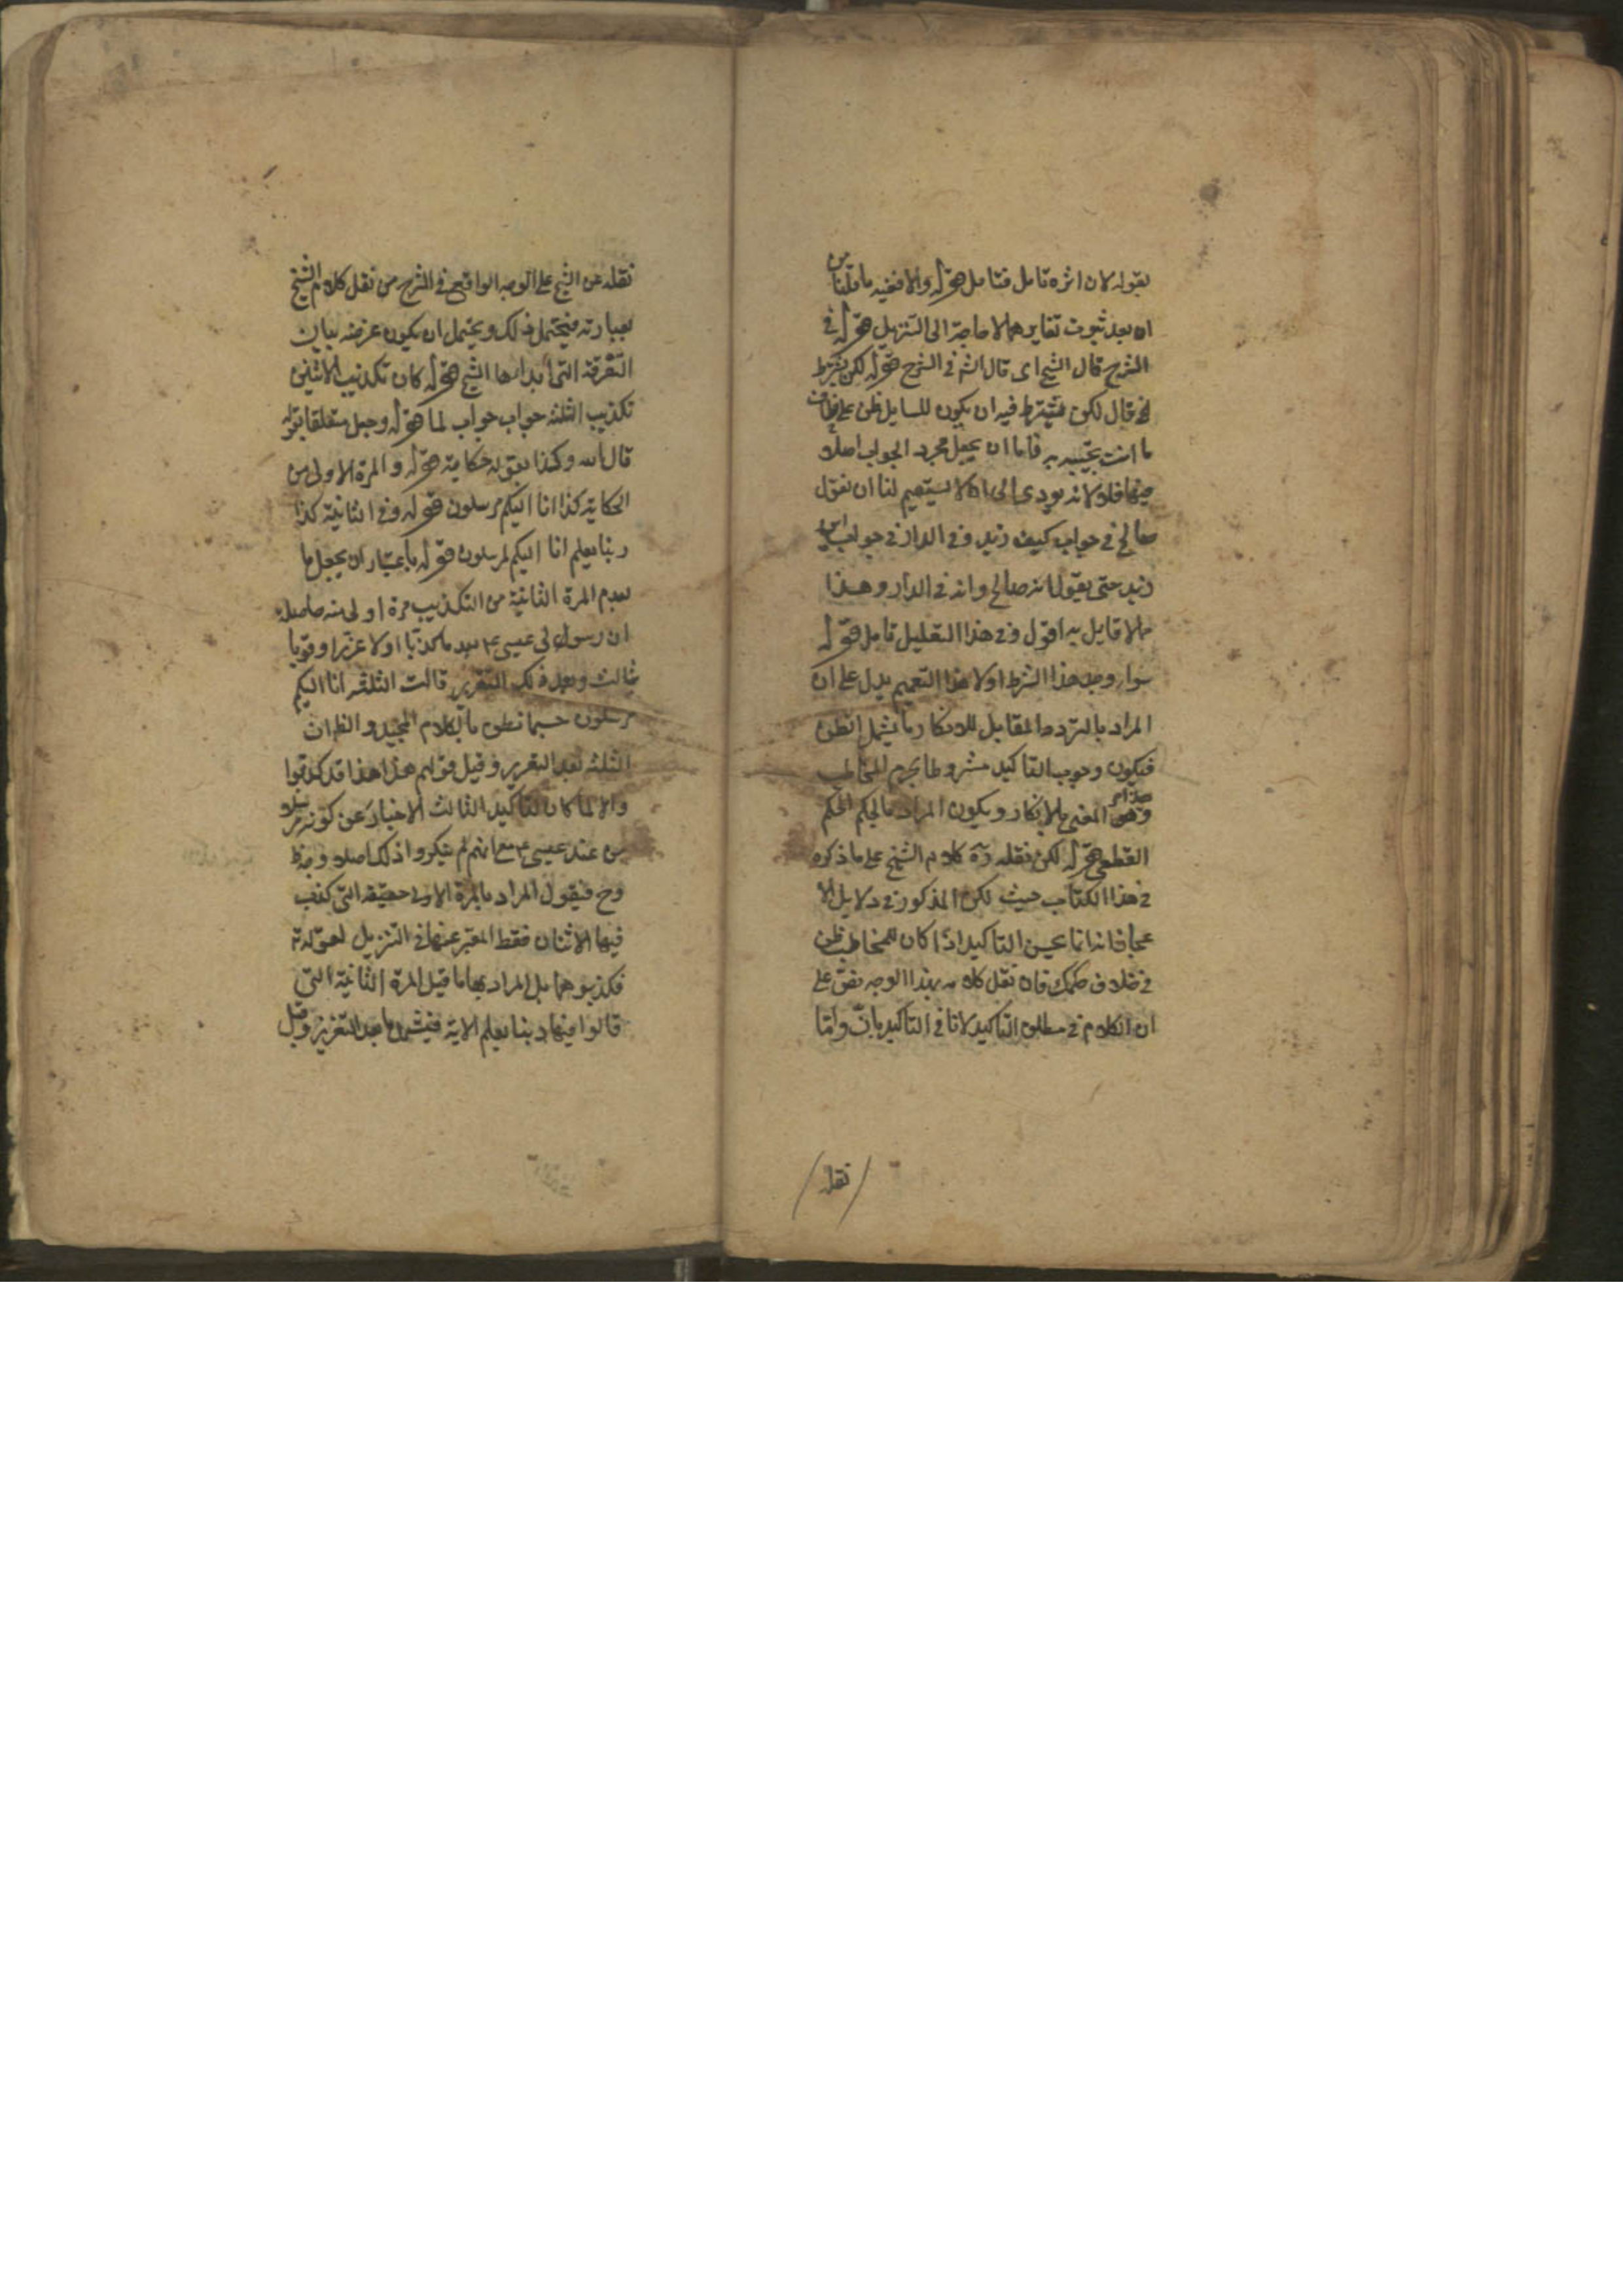 بقوله لان اثره تامل فتامل قوله والا ففيه ما قلنا من
ان بعد ثبوت تغايرهما لا حاجة الى التنزيل قوله في
الشرح قال الشيخ اى قال الش في الشرح قوله لكن يشترط
قال لكن يشترط فيه ان يكون للسايل ظن على خلاف
ما انت تجيبه به فاما ان يجعل مجرد الجواب اصلا
فيها فلا لانه يودى الى ان لا يستقيم لنا ان نقول
صالح في جواب كيف زيد وفي الدار في جواب اين
زيد حتى يقول انه صالح وانه في الدار وهذا
مما لا قايل به اقول في هذا التعليل تامل قوله
سواء وجد هذا الشرط اولا هذا التعميم يدل على ان
المراد بالتردد المقابل للانكار ما يشمل الظن
فيكون وجوب التاكيد مشروطا بجزم المخاطب
وهو المعنى بالانكار ويكون المراد بالحكم الحكم
القطعى قوله لكن نقله رده كلام الشيخ على ما ذكره
في هذا الكتاب حيث لكن المذكور في دلايل الا
عجاز انه انما يحسن التاكيد اذا كان للمخاطب ظن
في خلاف حكمك فان نقل كلامه بهذا الوجه يفق على
ان الكلام في مطلق التاكيد لا في التاكيد بان واما
نقله
نقله عن الشيخ على الوجه الواقع في الشرح من نقل كلام الشيخ
بعبارته فيحتمل ذلك ويحتمل ان يكون غرضه بيان
التفرقة التى ابداها الشيخ قوله كان تكذيب الاثنين
تكذيب الثلثه جواب جواب لما قوله وجعل متعلقا بقوله
قال الله وكذا بقوله حكاية قوله والمرة الاولى من
الحكاية كذا انا اليكم مرسلون قوله وفي الثانية كذا
ربنا يعلم انا اليكم لمرسلون قوله باعتبار ان يجعل ما
يعدم المرة الثانية من التكذيب مرة اولى منه حاصله
ان رسولى عيسى ع بعد ما كذبا اولا عززا وقويا
بثالث وبعد ذلك التعزير قالت الثلثة انا اليكم
مرسلون حسبما نطق به الكلام المجيد والظ ان
الثلثه بعد التعزير وقبل قولهم هذا هذا قد كذبوا
والا لما كان لتاكيد الثالث الاخبار عن كونه مرسلا
من عند عيسى ع مع انهم لم ينكروا ذلك اصلا وجه
وح فيقول المراد بالمرة الاولى حقيقه التى كذب
فيها الاثنان فقط المعبر عنها في التنزيل بقوله تع
فكذبوهما بل المراد بها ما قبل المرة الثانية التى
قالوا فيها ربنا يعلم الاية فيشمل ما بعد التعزيز وقبل